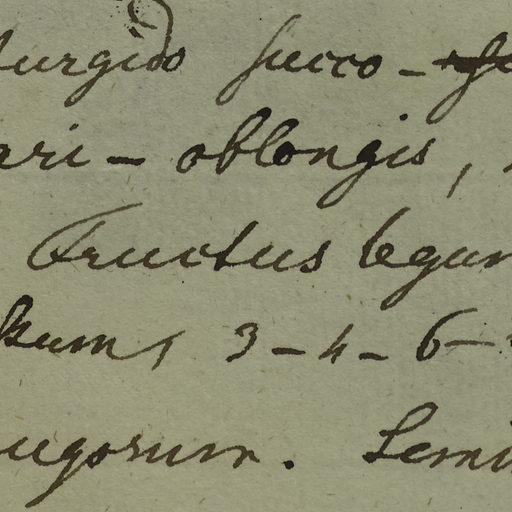 turgido succo -
ari - oblongis,
Fructus legum
3-4-6-
ugorum. Semin